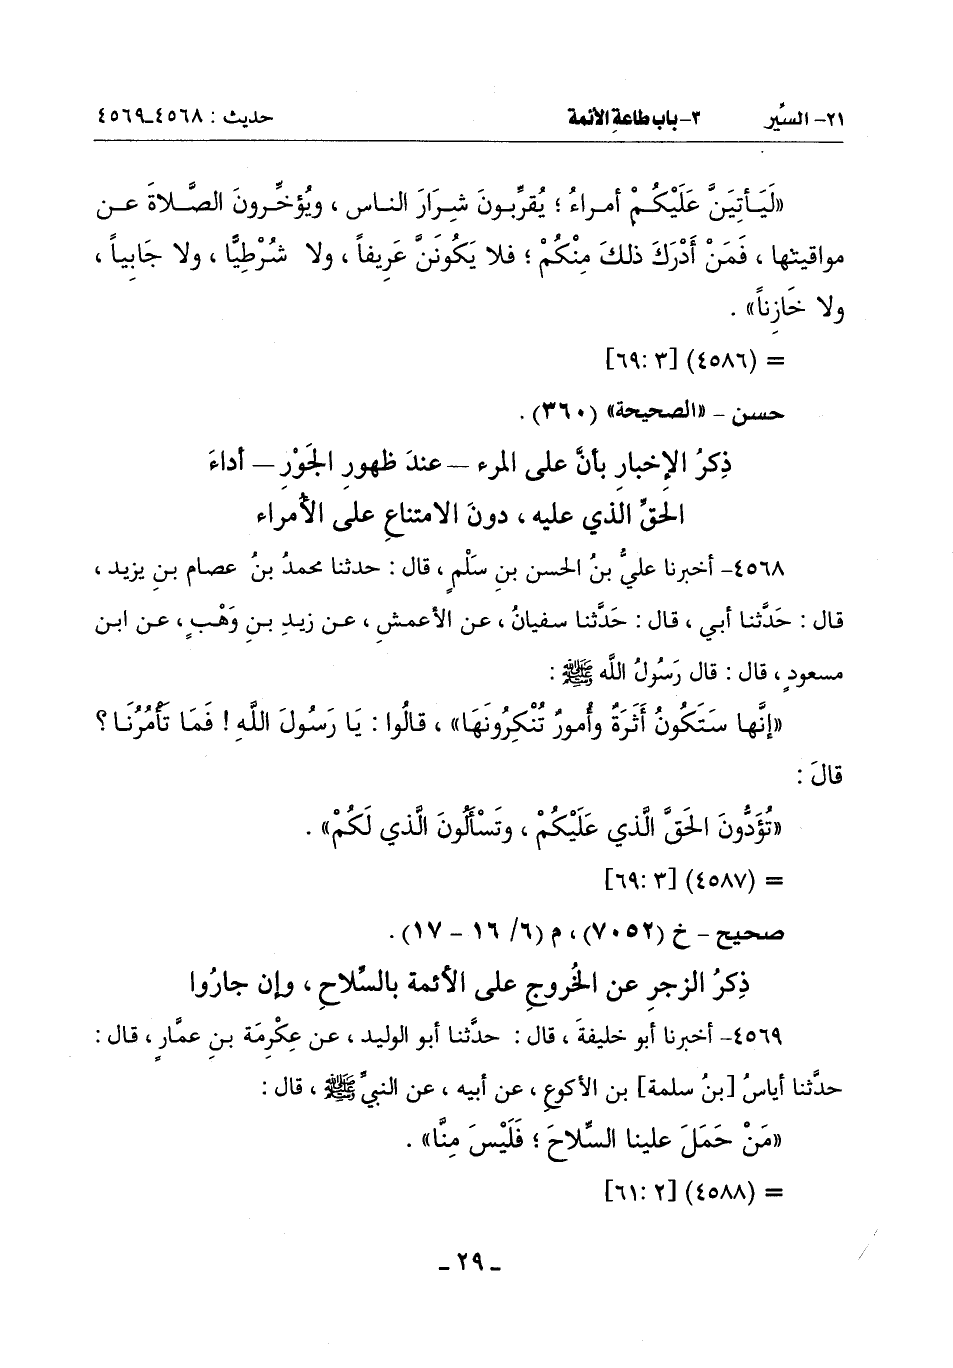 ٢١- السِّير ٣-باب طاعة الأئمة حديث : ٤٥٦٨-٤٥٦٩
«لَيَأتِيَنَّ عَلَيْكُمْ أمراءُ ؛ يُقرِّبونَ شِرَارَ الناس ، ويُؤخِّرونَ الصَّلاةَ عن
مواقيتها ، فَمَنْ أَدْرَكَ ذلكَ مِنْكُمْ ؛ فلا يَكُونَنَّ عَرِيفاً ، ولا شُرْطِيًّا ، ولا جَابِياً ،
ولا خَازِناً» .
= (٤٥٨٦) [٣ :٦٩]
حسن - «الصحيحة» (٣٦٠) .
ذِكرُ الإخبارِ بأنَّ على المرء – عندَ ظهورِ الجَوْرِ – أداءَ
الحقِّ الذي عليه ، دونَ الامتناعِ على الأُمراء
٤٥٦٨- أخبرنا عليُّ بنُ الحسن بنِ سَلْمٍ ، قال : حدثنا محمدُ بنُ عصام بنِ يزيد ،
قال : حَدَّثنا أبي ، قال : حَدَّثنا سفيانُ ، عن الأعمشِ ، عن زيدِ بنِ وَهْبٍ ، عن ابن
مسعودٍ ، قال : قال رَسُولُ اللَّه ﷺ :
«إنَّها سَتَكُونُ أَثَرَةٌ وأُمورٌ تُنْكِرُونَهَا» ، قالُوا : يَا رَسُولَ اللَّهِ ! فَمَا تَأْمُرُنَا ؟
قالَ :
«تُؤَدُّونَ الحَقَّ الَّذي عَلَيْكُمْ ، وتَسْأَلُونَ الَّذي لَكُمْ» .
= (٤٥٨٧) [٣ :٦٩]
صحيح - خ (٧٠٥٢) ، م (٦/ ١٦ - ١٧) .
ذِكرُ الزجرِ عن الخُروجِ على الأئمة بالسِّلاحِ ، وإن جارُوا
٤٥٦٩- أخبرنا أبو خليفةَ ، قال : حدَّثنا أبو الوليد ، عن عِكْرِمَة بنِ عمَّارٍ ، قال :
حدَّثنا أياسُ [بنُ سلمة] بن الأكوعِ ، عن أبيه ، عن النبيِّ ﷺ ، قال :
«مَنْ حَمَلَ علينا السِّلاحَ ؛ فَلَيْسَ مِنَّا» .
= (٤٥٨٨) [٢ :٦١]
- ٢٩ -